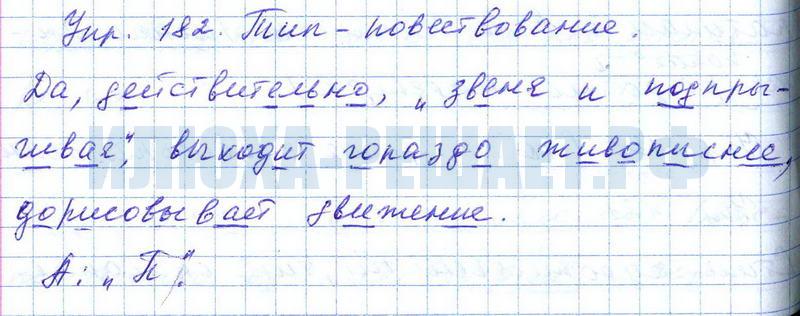 Упр. 182. Тип - повествование.
Да, действительно, „звеня и подпры-
гивая", выходит гораздо живописнее,
дорисовывает движение.
А: „П".
ИЛЮХА-РЕШАЕТ.РФ